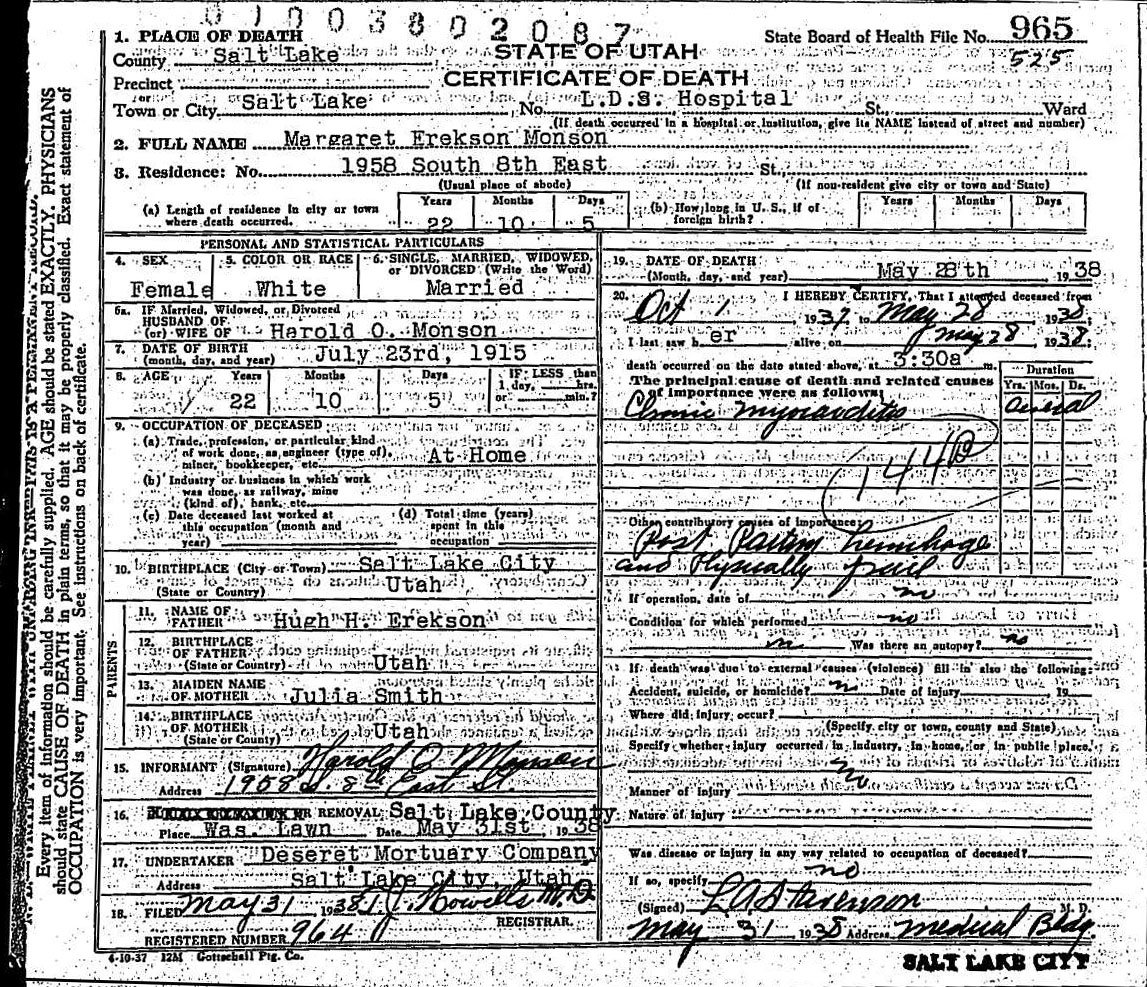 0100380 2087
1. PLACE OF DEATH
State Board of Health File No. 965
525
County Salt Lake
STATE OF UTAH
Precinct
CERTIFICATE OF DEATH
or
Town or City Salt Lake No. L.D.S. Hospital St. Ward
(If death occurred in a hospital or institution, give its NAME instead of street and number)
2. FULL NAME Margaret Erekson Monson
3. Residence: No. 1958 South 8th East St.
(Usual place of abode) (If non-resident give city or town and State)
(a) Length of residence in city or town where death occurred. Years 22 Months 10 Days 5
(b) How long in U. S., if of foreign birth? Years Months Days
PERSONAL AND STATISTICAL PARTICULARS
4. SEX Female
5. COLOR OR RACE White
6. SINGLE, MARRIED, WIDOWED, or DIVORCED (Write the Word) Married
6a. IF Married, Widowed, or Divorced
HUSBAND OF
(or) WIFE OF Harold O. Monson
7. DATE OF BIRTH
(month, day, and year) July 23rd, 1915
8. AGE Years 22 Months 10 Days 5 IF LESS than 1 day, hrs. or min.?
9. OCCUPATION OF DECEASED
(a) Trade, profession, or particular kind
of work done, as engineer (type of),
miner, bookkeeper, etc. At Home
(b) Industry or business in which work
was done, as railway, mine
(kind of), bank, etc.
(c) Date deceased last worked at
this occupation (month and
year)
(d) Total time (years)
spent in this
occupation
10. BIRTHPLACE (City or Town) Salt Lake City
(State or Country) Utah
PARENTS
11. NAME OF
FATHER Hugh H. Erekson
12. BIRTHPLACE
OF FATHER
(State or Country) Utah
13. MAIDEN NAME
OF MOTHER Julia Smith
14. BIRTHPLACE
OF MOTHER
(State or Country) Utah
15. INFORMANT (Signature) Harold O Monson
Address 1958 S. 8th East St.
16. OR REMOVAL Salt Lake County
Place Was. Lawn Date May 31st 1938
17. UNDERTAKER Deseret Mortuary Company
Address Salt Lake City, Utah
18. FILED May 31 1938 Howells M.D
REGISTRAR.
REGISTERED NUMBER 964
4-10-37 12M Gottschall Ptg. Co.
19. DATE OF DEATH
(Month, day, and year) May 28th 1938
20. I HEREBY CERTIFY, That I attended deceased from
Oct 1 1937 to May 28 1938
I last saw her alive on May 28 1938;
death occurred on the date stated above, at 3:30a m.
The principal cause of death and related causes
of importance were as follows:
Duration
Yrs. Mos. Ds.
Chronic myocarditis several
144B
Other contributory causes of importance:
Post Partum hemihage
and Physically frail
If operation, date of no
Condition for which performed no
Was there an autopsy? no
If death was due to external causes (violence) fill in also the following:
Accident, suicide, or homicide? n Date of injury 19
Where did injury occur?
(Specify city or town, county and State)
Specify whether injury occurred in industry, in home, or in public place.
no
Manner of injury
Nature of injury
Was disease or injury in any way related to occupation of deceased?
no
If so, specify
(Signed) L A Stevenson M. D.
May 31 1938 Address Medical Bldg.
SALT LAKE CITY
Every item of information should be carefully supplied. AGE should be stated EXACTLY. PHYSICIANS
should state CAUSE OF DEATH in plain terms, so that it may be properly classified. Exact statement of
OCCUPATION is very important. See instructions on back of certificate.